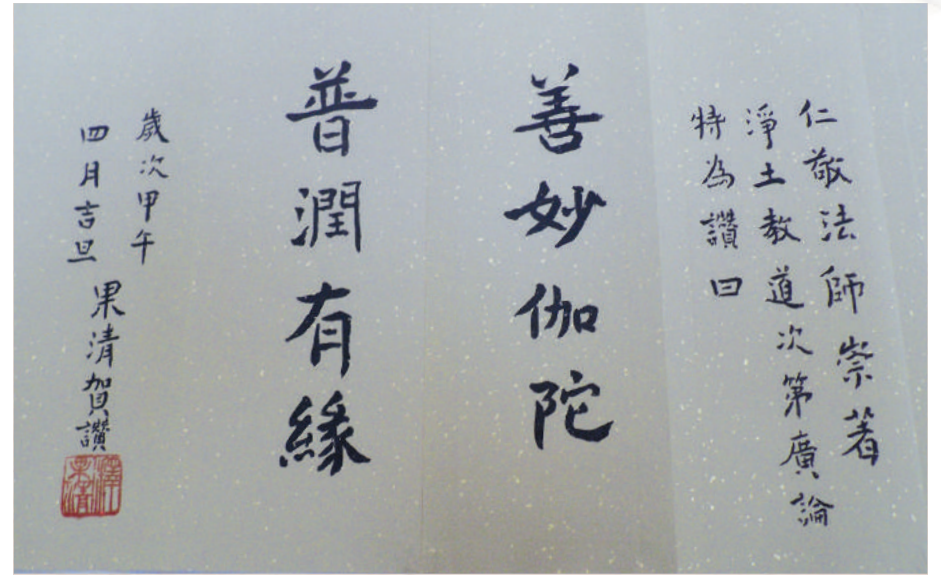 仁敬法師崇著
淨土教道次第廣論
特為讚曰
善妙伽陀
普潤有緣
歲次甲午
四月吉旦
果清賀讚
釋果清